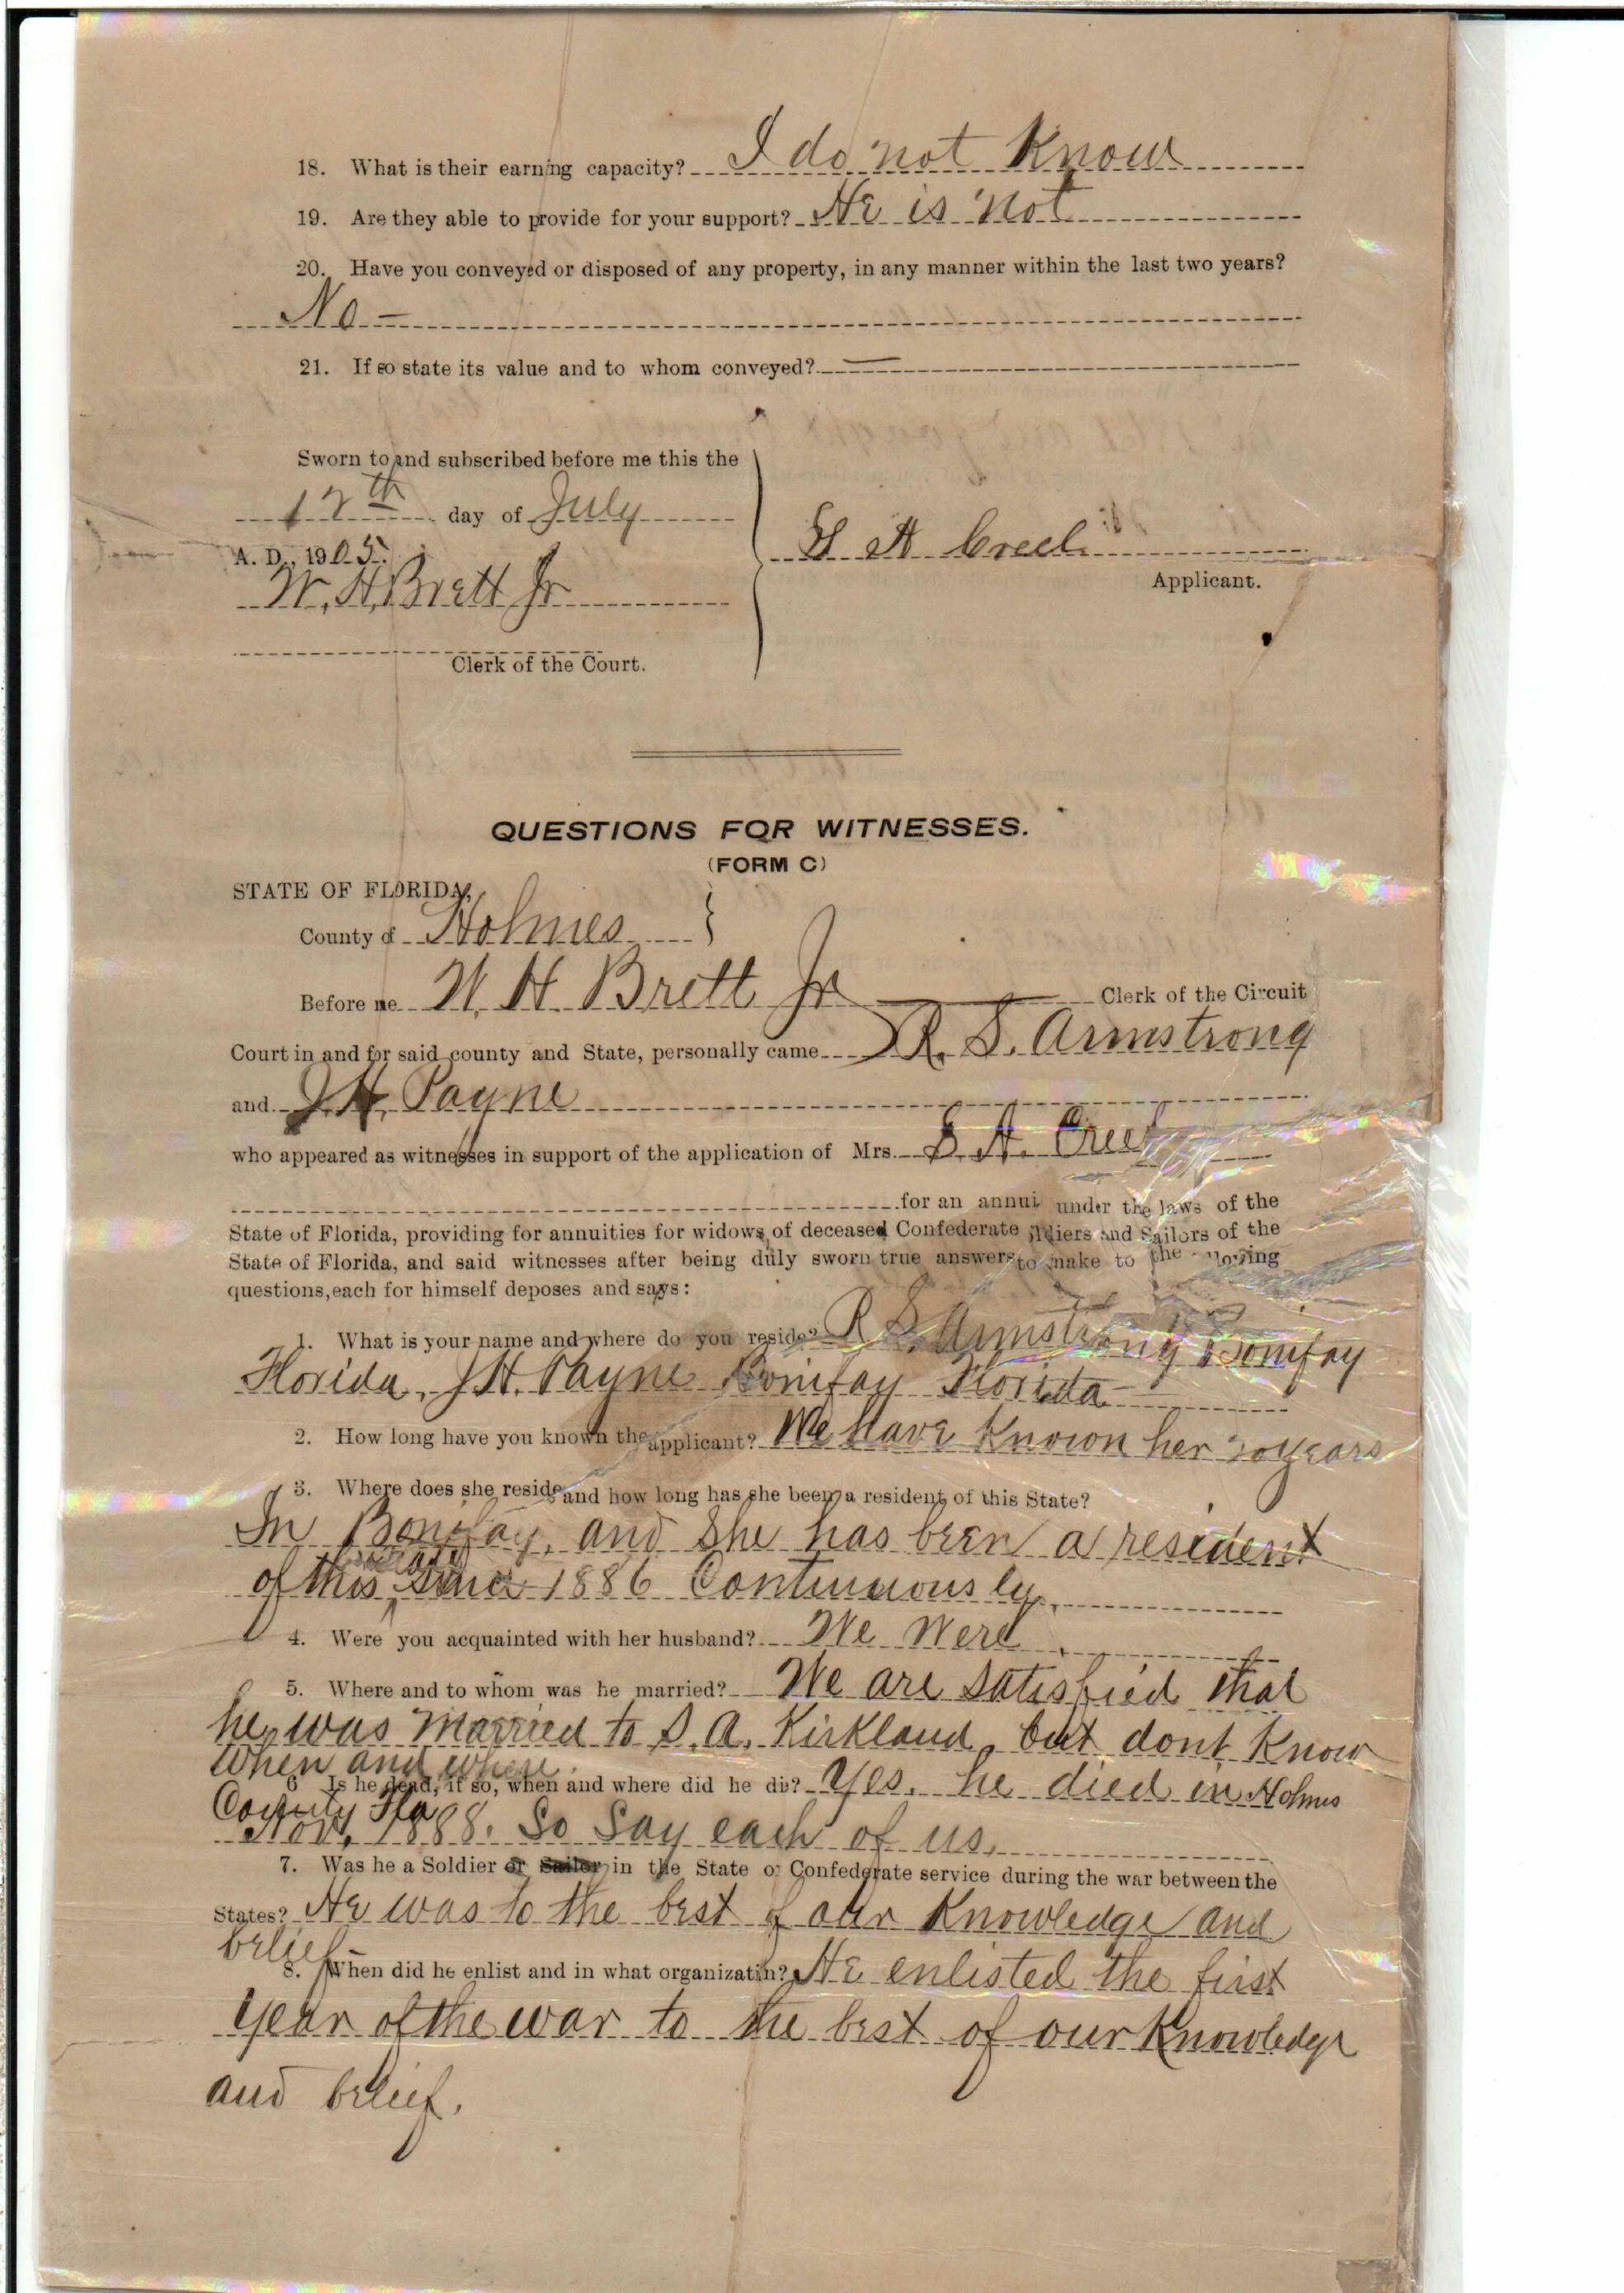 18. What is their earning capacity? I do not Know
19. Are they able to provide for your support? He is not
20. Have you conveyed or disposed of any property, in any manner within the last two years?
No —
21. If so state its value and to whom conveyed? —
Sworn to and subscribed before me this the
12th day of July
A. D., 1905.
W. H. Brett Jr
Clerk of the Court.
S A Creel
Applicant.
QUESTIONS FOR WITNESSES.
(FORM C)
STATE OF FLORIDA,
County of Holmes
Before me W. H. Brett Jr Clerk of the Circuit
Court in and for said county and State, personally came R. S. Armstrong
and J. H. Payne
who appeared as witnesses in support of the application of Mrs. S. A. Creel
for an annui under the laws of the
State of Florida, providing for annuities for widows of deceased Confederate diers and Sailors of the
State of Florida, and said witnesses after being duly sworn true answers to make to the lowing
questions, each for himself deposes and says:
1. What is your name and where do you reside? R S. Armstrong Bonifay
Florida, J H. Payne Bonifay Florida
2. How long have you known the applicant? We have Known her 20 years
3. Where does she reside and how long has she been a resident of this State?
In Bonifay, and she has been a resident
of this state since 1886 Continuously.
4. Were you acquainted with her husband? We Were
5. Where and to whom was he married? We are satisfied that
he was married to S. A. Kirkland, but dont Know
when and where.
6 Is he dead, if so, when and where did he die? Yes, he died in Holms
County Fla
Nov, 1888. So Say each of us,
7. Was he a Soldier or Sailor in the State or Confederate service during the war between the
States? He was to the best of our Knowledge and
belief—
8. When did he enlist and in what organizatin? He enlisted the first
year of the war to the best of our Knowledge
and belief.